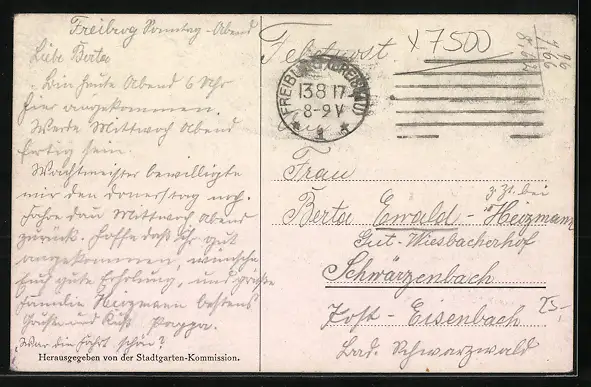 Freibrog Sonntag - Abend
Liebe Berta
Bin heute Abend 6 Uhr
hier angekommen.
Werde Mittwoch Abend
fertig sein.
Wachtmeister bewilligte
mir den donerstag noch.
fahre dan Mittwoch Abend
zurück. Hoffe daß Ihr gut
angekommen, wünsche
Euch gute Erholung, und grüße
Familie Heizmann bestens
Gruß und Kuß Pappa.
War die Fahrt schön?
Herausgegeben von der Stadtgarten-Kommission.
Feldpost
x 7500
FREIBURG (BREISGAU)
13.8.17
8-9V
Frau
z. Zt. bei
Berta Ewald - Heizmann
Gut - Wiesbacherhof
Schwärzenbach
Post - Eisenbach
Bad. Schwarzwald